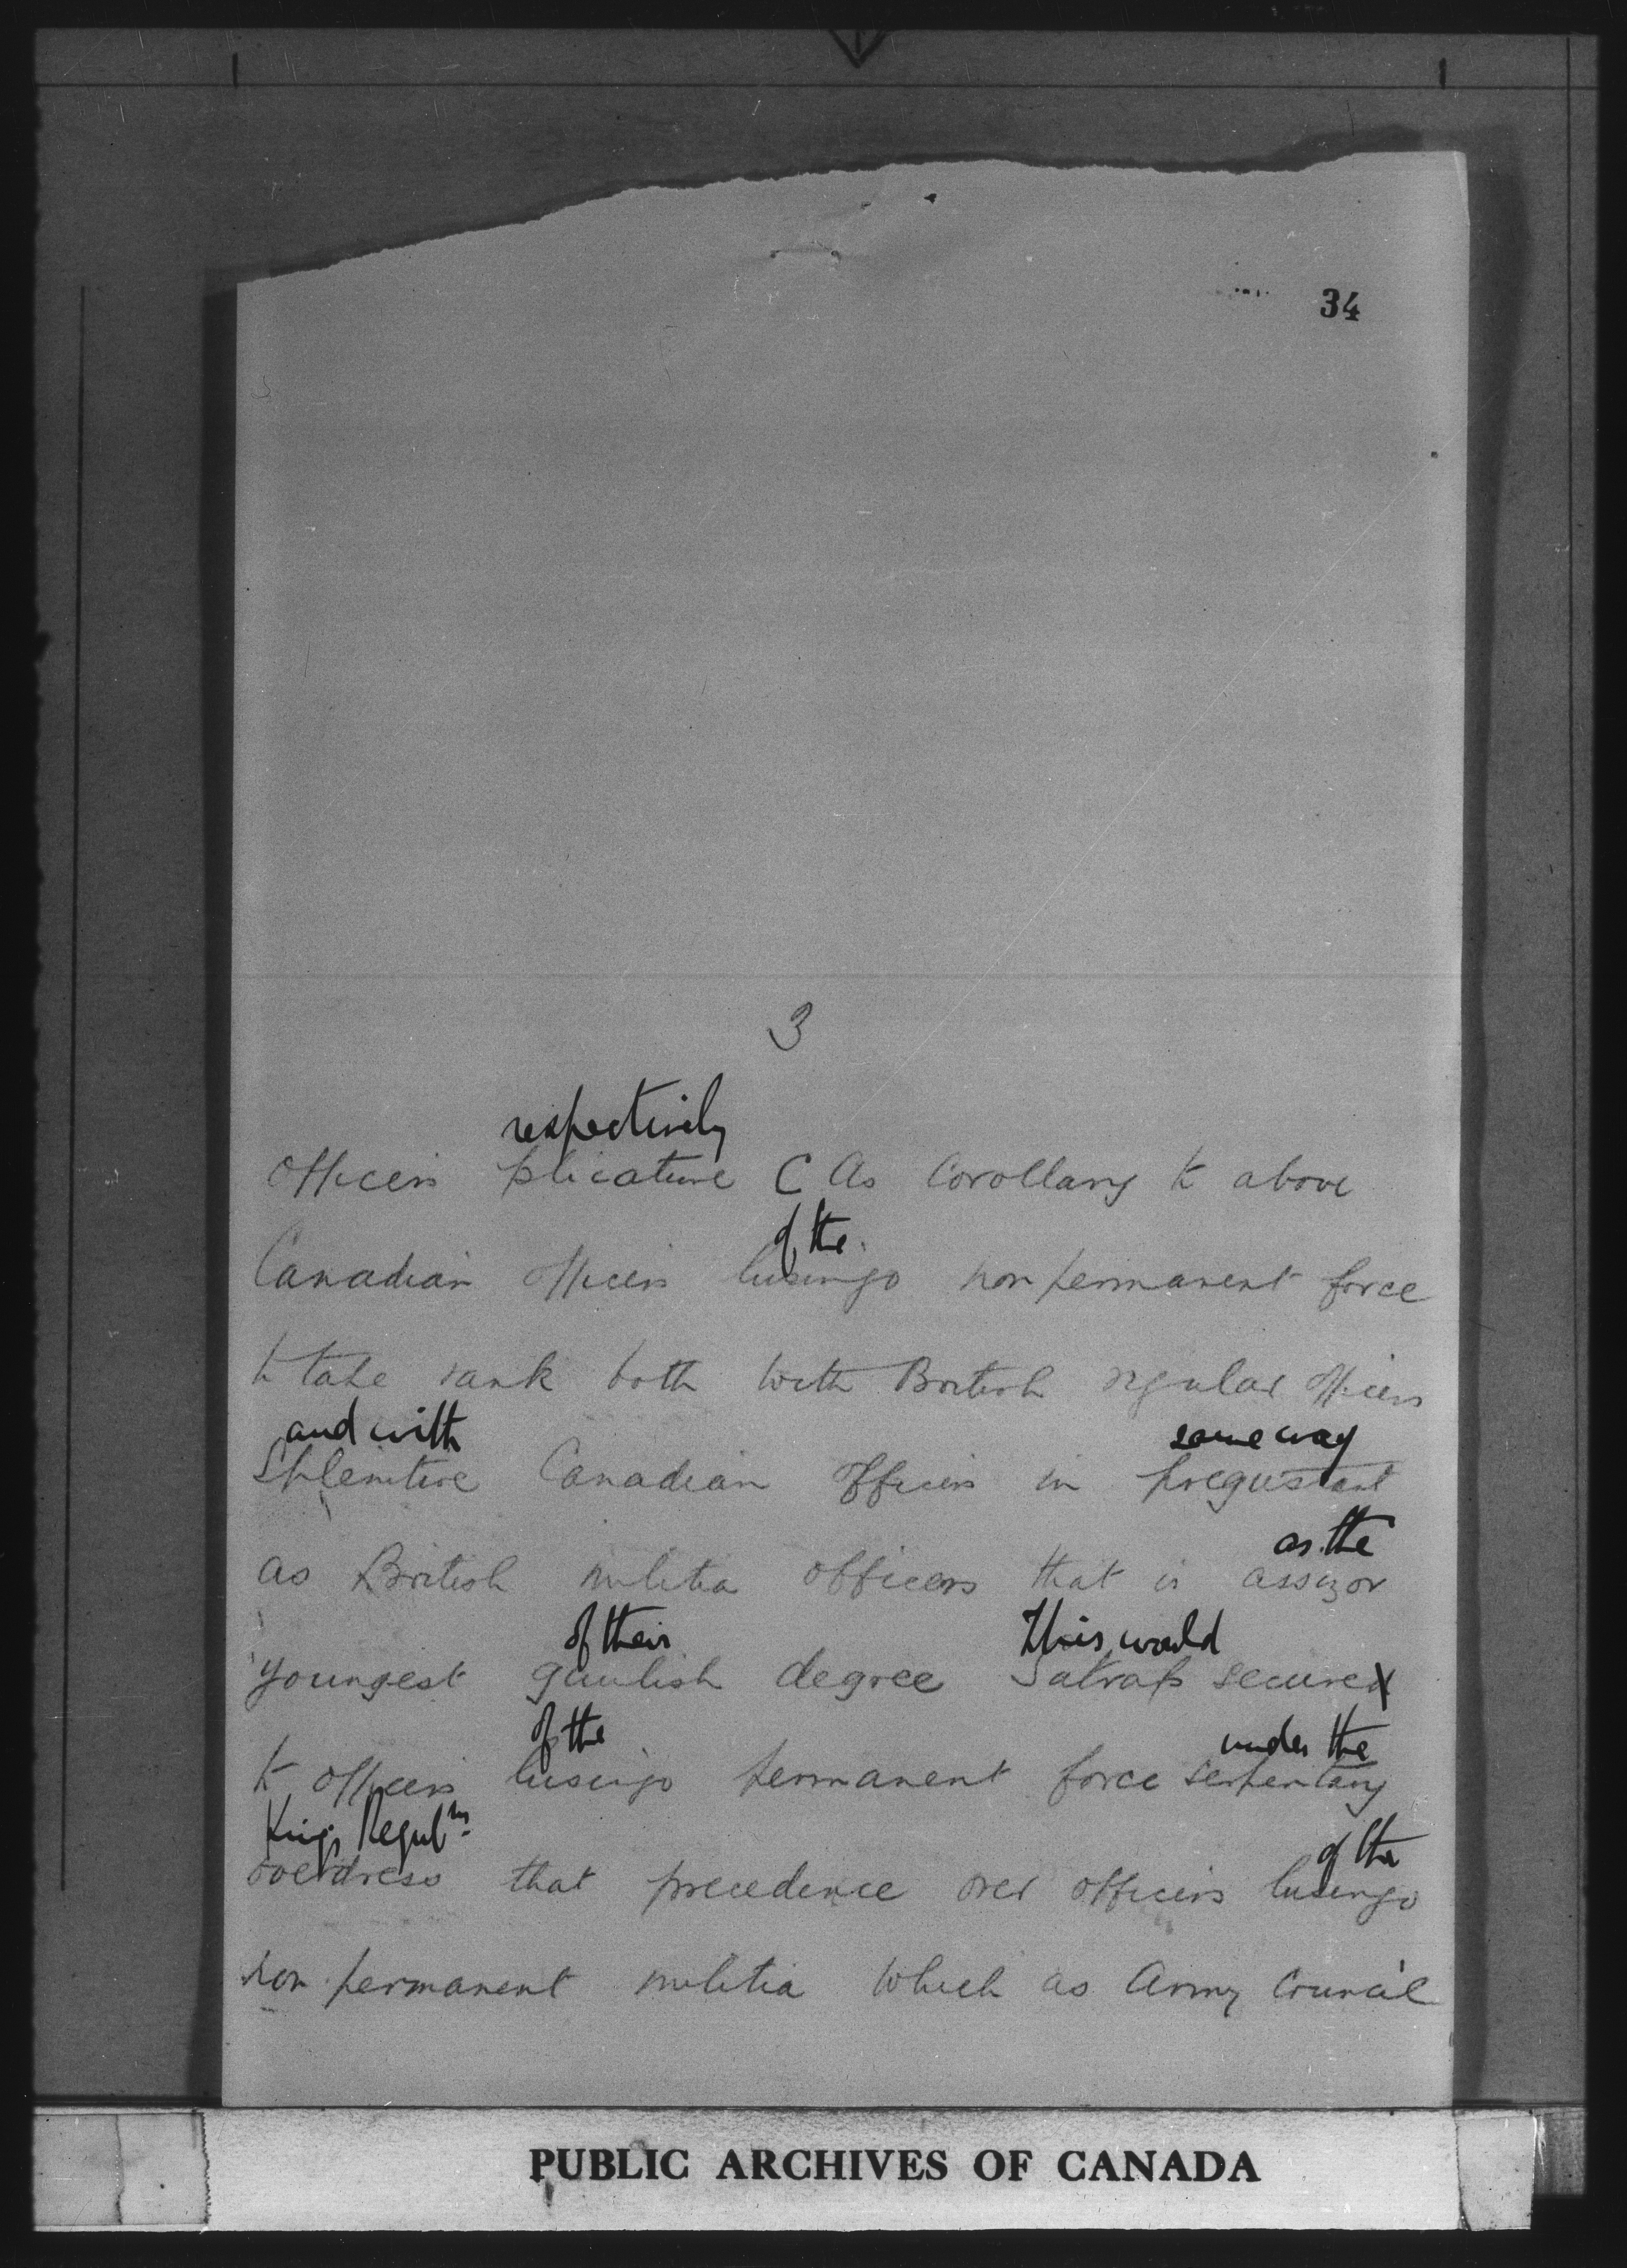 34
3
respectively
Officers plicature C As Corollary to above
of the
Canadian Officers lusingo non permanent force
to take rank both with British regular officers
and with same way
Splenitive Canadian Officers in pregustant
as the
as British militia officers that is assizor
of their This would
youngest gaulish degree Satrap secured
of the under the
to officers lusingo permanent force serpentary
Kings Regul<sup>ns</sup> of the
overdress that precedence over officers lusingo
non permanent militia which as Army Council
PUBLIC ARCHIVES OF CANADA